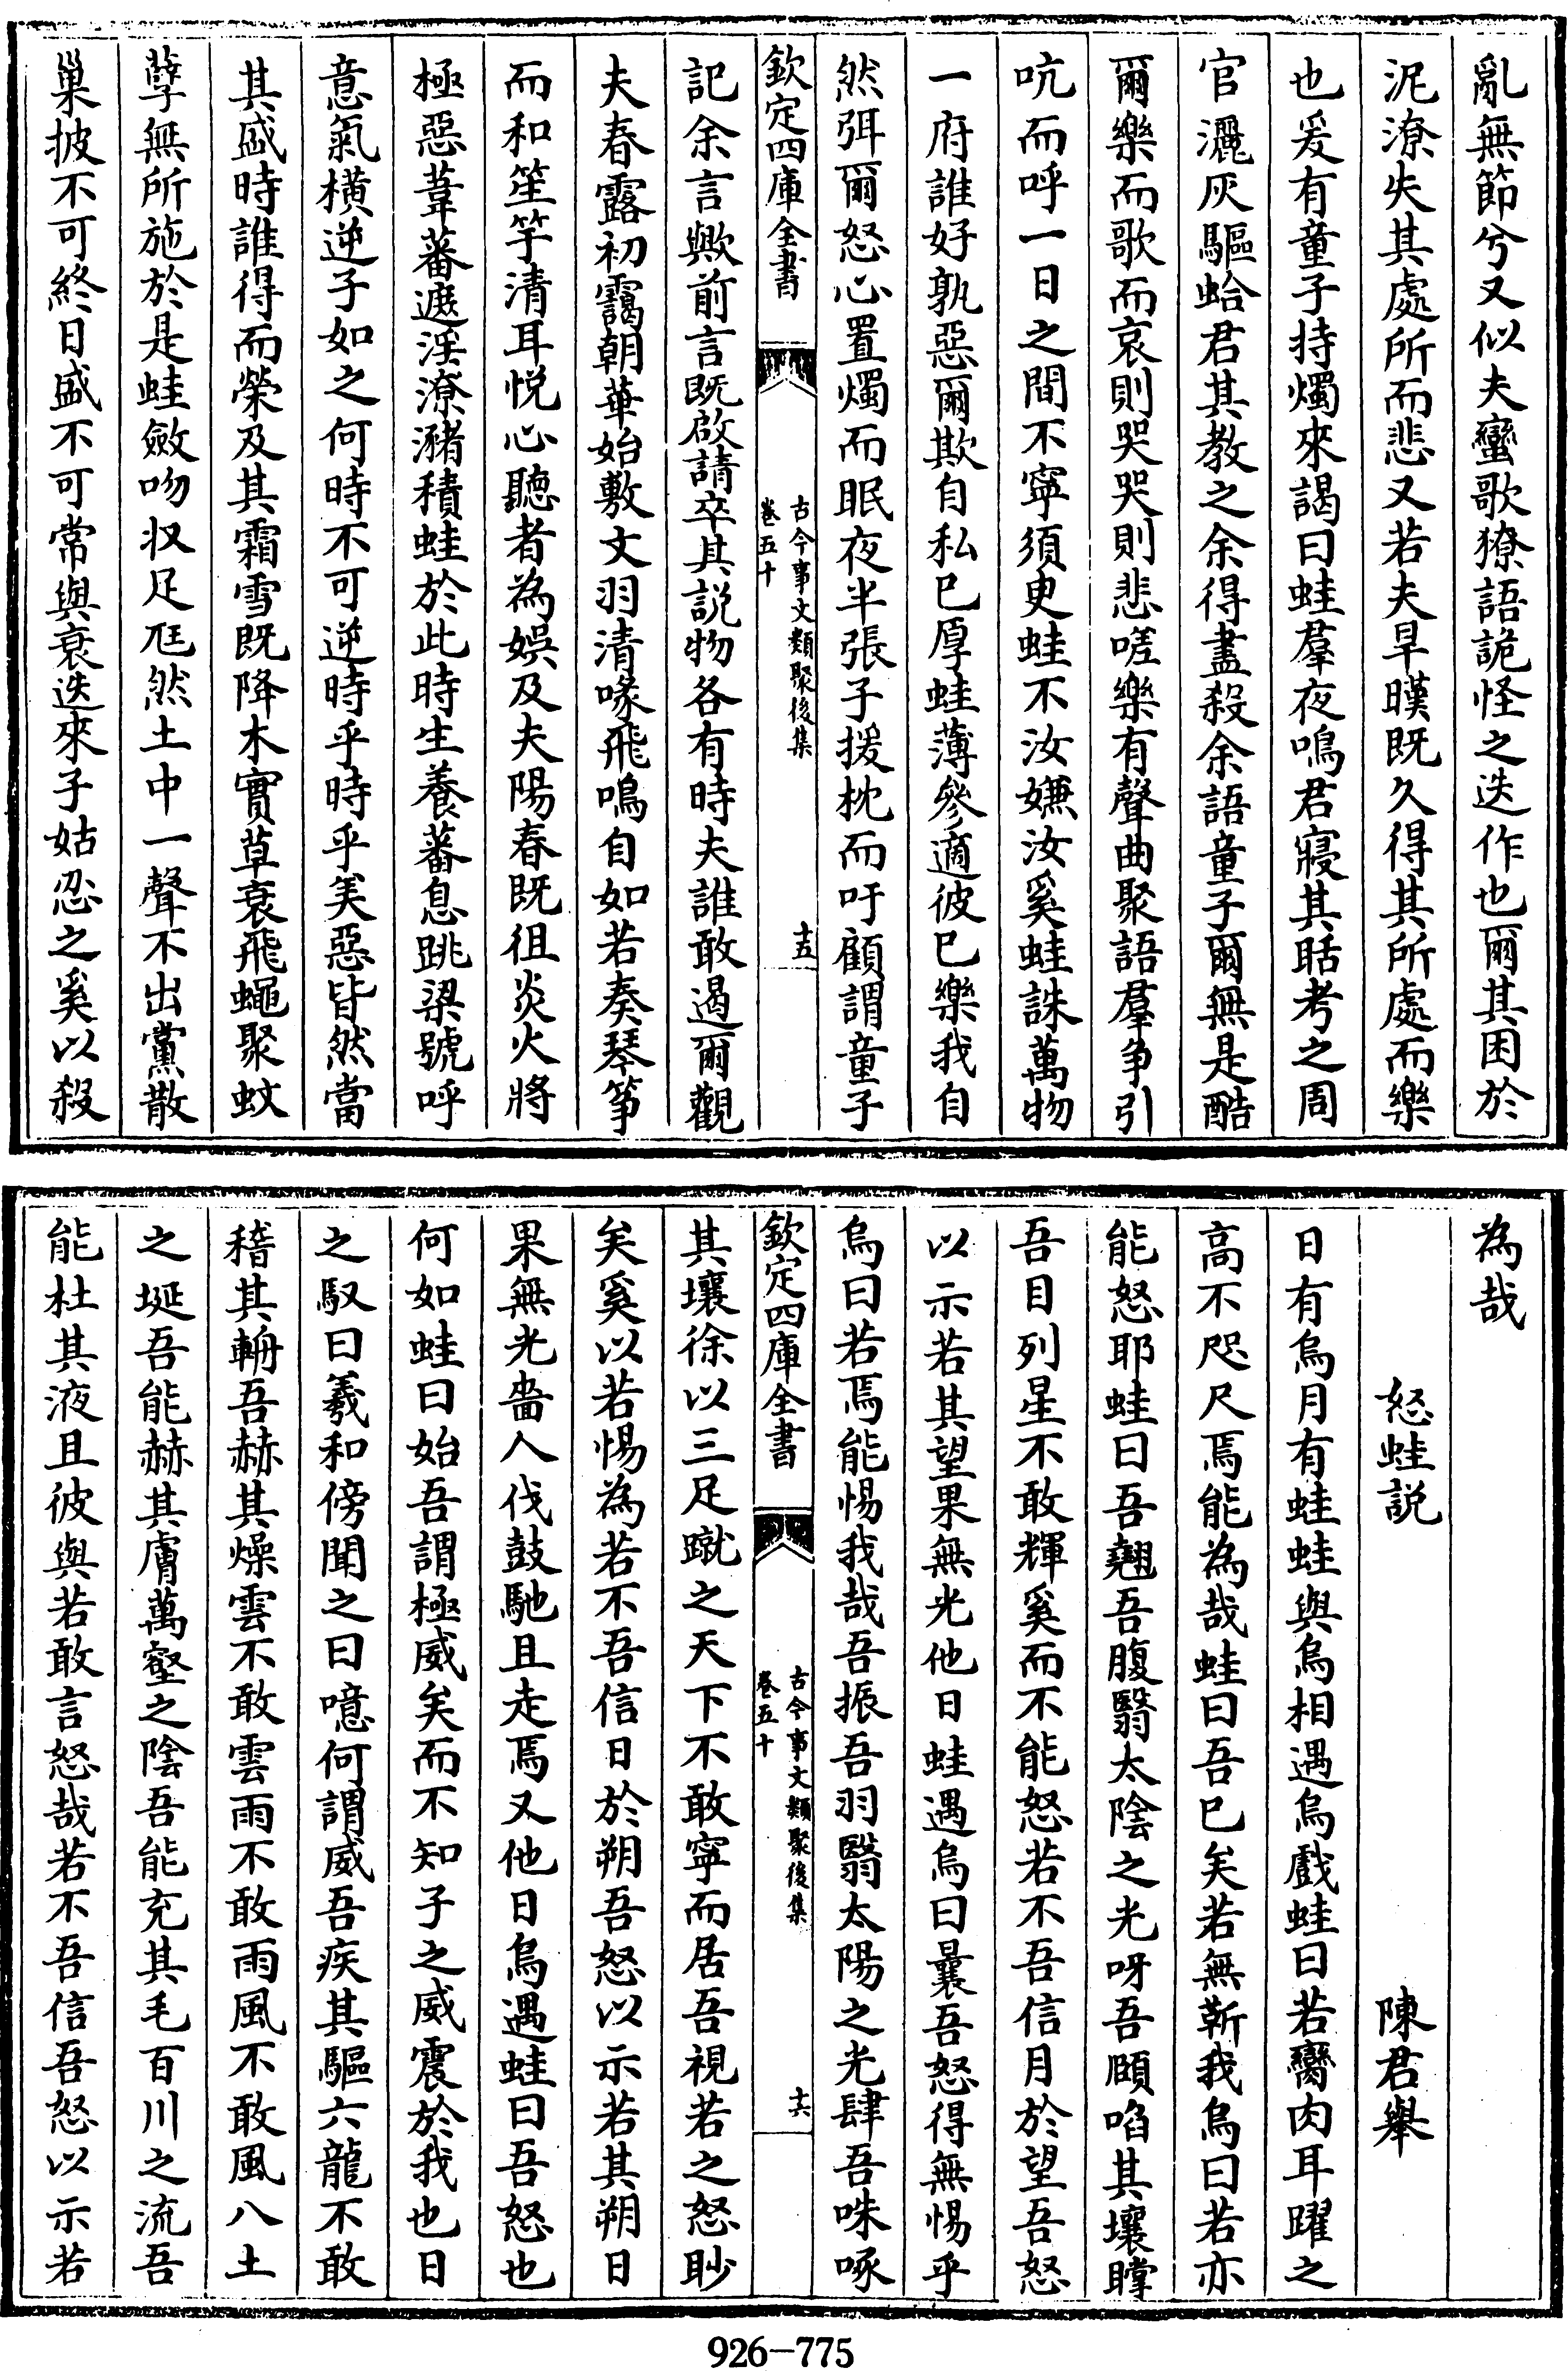 亂無節兮又似夫蠻歌獠語詭怪之迭作也爾其困於
泥潦失其處所而悲又若夫旱暵既久得其所處而樂
也爰有童子持燭來謁曰蛙羣夜鳴君寢其聒考之周
官灑灰驅蛤君其教之余得盡殺余語童子爾無是酷
爾樂而歌而哀則哭哭則悲嗟樂有聲曲聚語羣争引
吭而呼一日之間不寧須臾蛙不汝嫌汝奚蛙誅萬物
一府誰好孰惡爾欺自私已厚蛙薄參適彼已樂我自
然弭爾怒心置燭而眠夜半張子援枕而吁顧謂童子
欽定四庫全書
古今事文類聚後集
卷五十
十五
記余言歟前言既啟請卒其説物各有時夫誰敢遏爾觀
夫春露初靄朝華始敷文羽清喙飛鳴自如若奏琴筝
而和笙竽清耳悦心聽者為娛及夫陽春既徂炎火將
極惡葦蕃遮淫潦瀦積蛙於此時生養蕃息跳梁號呼
意氣横逆子如之何時不可逆時乎時乎美惡皆然當
其盛時誰得而榮及其霜雪既降木實草衰飛蠅聚蚊
孽無所施於是蛙斂吻収足尫然土中一聲不出黨散
巢披不可終日盛不可常與衰迭來子姑忍之奚以殺
為哉
怒蛙説　陳君舉
日有烏月有蛙蛙與烏相遇烏戲蛙曰若臠肉耳躍之
高不咫尺焉能為哉蛙曰吾已矣若無靳我烏曰若亦
能怒耶蛙曰吾翹吾腹翳太陰之光呀吾頤啗其壤瞠
吾目列星不敢輝奚而不能怒若不吾信月於望吾怒
以示若其望果無光他日蛙遇烏曰曩吾怒得無惕乎
烏曰若焉能惕我哉吾振吾羽翳太陽之光肆吾咮啄
欽定四庫全書
古今事文類聚後集
卷五十
十六
其壤徐以三足蹴之天下不敢寧而居吾視若之怒眇
矣奚以若惕為若不吾信日於朔吾怒以示若其朔日
果無光嗇人伐鼓馳且走焉又他日烏遇蛙曰吾怒也
何如蛙曰始吾謂極威矣而不知子之威震於我也日
之馭曰羲和傍聞之曰噫何謂威吾疾其驅六龍不敢
稽其輈吾赫其燥雲不敢雲雨不敢雨風不敢風八土
之埏吾能赫其膚萬壑之陰吾能充其毛百川之流吾
能杜其液且彼與若敢言怒哉若不吾信吾怒以示若
926-775